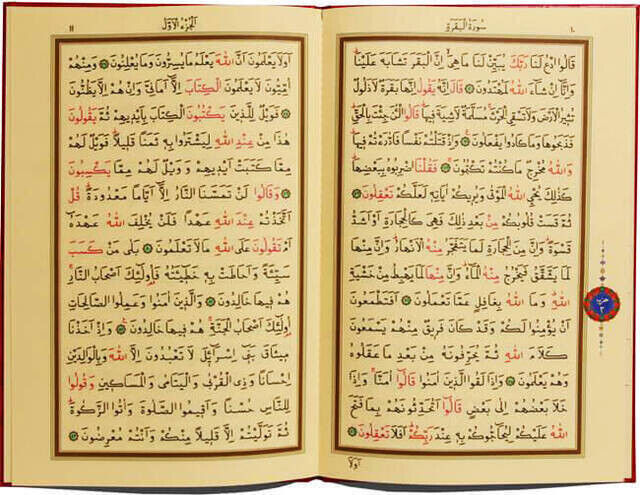 ١٠ سورة البقرة
قَالُوا ادْعُ لَنَا رَبَّكَ يُبَيِّنْ لَنَا مَا هِيَ اِنَّ الْبَقَرَ تَشَابَهَ عَلَيْنَا
وَاِنَّٓا اِنْ شَٓاءَ اللّٰهُ لَمُهْتَدُونَ قَالَ اِنَّهُ يَقُولُ اِنَّهَا بَقَرَةٌ لَا ذَلُولٌ
تُثِيرُ الْاَرْضَ وَلَا تَسْقِي الْحَرْثَ مُسَلَّمَةٌ لَا شِيَةَ فِيهَا قَالُوا الْـٰٔنَ جِئْتَ بِالْحَقِّ
فَذَبَحُوهَا وَمَا كَادُوا يَفْعَلُونَ وَاِذْ قَتَلْتُمْ نَفْسًا فَادّٰرَءْتُمْ فِيهَا
وَاللّٰهُ مُخْرِجٌ مَا كُنْتُمْ تَكْتُمُونَ فَقُلْنَا اضْرِبُوهُ بِبَعْضِهَا
كَذٰلِكَ يُحْيِي اللّٰهُ الْمَوْتٰى وَيُرِيكُمْ اٰيَاتِهِ لَعَلَّكُمْ تَعْقِلُونَ
ثُمَّ قَسَتْ قُلُوبُكُمْ مِنْ بَعْدِ ذٰلِكَ فَهِيَ كَالْحِجَارَةِ اَوْ اَشَدُّ
قَسْوَةً وَاِنَّ مِنَ الْحِجَارَةِ لَمَا يَتَفَجَّرُ مِنْهُ الْاَنْهَارُ وَاِنَّ مِنْهَا
لَمَا يَشَّقَّقُ فَيَخْرُجُ مِنْهُ الْمَٓاءُ وَاِنَّ مِنْهَا لَمَا يَهْبِطُ مِنْ خَشْيَةِ
اللّٰهِ وَمَا اللّٰهُ بِغَافِلٍ عَمَّا تَعْمَلُونَ اَفَتَطْمَعُونَ
اَنْ يُؤْمِنُوا لَكُمْ وَقَدْ كَانَ فَرِيقٌ مِنْهُمْ يَسْمَعُونَ
كَلَامَ اللّٰهِ ثُمَّ يُحَرِّفُونَهُ مِنْ بَعْدِ مَا عَقَلُوهُ
وَهُمْ يَعْلَمُونَ وَاِذَا لَقُوا الَّذِينَ اٰمَنُوا قَالُٓوا اٰمَنَّا وَاِذَا
خَلَا بَعْضُهُمْ اِلٰى بَعْضٍ قَالُٓوا اَتُحَدِّثُونَهُمْ بِمَا فَتَحَ
اللّٰهُ عَلَيْكُمْ لِيُحَٓاجُّوكُمْ بِهِ عِنْدَ رَبِّكُمْ اَفَلَا تَعْقِلُونَ
اولا
الجزء الاول ١١
اَوَلَا يَعْلَمُونَ اَنَّ اللّٰهَ يَعْلَمُ مَا يُسِرُّونَ وَمَا يُعْلِنُونَ وَمِنْهُمْ
اُمِّيُّونَ لَا يَعْلَمُونَ الْكِتَابَ اِلَّٓا اَمَانِيَّ وَاِنْ هُمْ اِلَّا يَظُنُّونَ
فَوَيْلٌ لِلَّذِينَ يَكْتُبُونَ الْكِتَابَ بِاَيْدِيهِمْ ثُمَّ يَقُولُونَ
هٰذَا مِنْ عِنْدِ اللّٰهِ لِيَشْتَرُوا بِهِ ثَمَنًا قَلِيلًا فَوَيْلٌ لَهُمْ
مِمَّا كَتَبَتْ اَيْدِيهِمْ وَوَيْلٌ لَهُمْ مِمَّا يَكْسِبُونَ
وَقَالُوا لَنْ تَمَسَّنَا النَّارُ اِلَّٓا اَيَّامًا مَعْدُودَةً قُلْ
اَتَّخَذْتُمْ عِنْدَ اللّٰهِ عَهْدًا فَلَنْ يُخْلِفَ اللّٰهُ عَهْدَهُٓ
اَمْ تَقُولُونَ عَلَى اللّٰهِ مَا لَا تَعْلَمُونَ بَلٰى مَنْ كَسَبَ
سَيِّئَةً وَاَحَاطَتْ بِهِ خَطِٓيـَٔتُهُ فَاُولٰٓئِكَ اَصْحَابُ النَّارِ
هُمْ فِيهَا خَالِدُونَ وَالَّذِينَ اٰمَنُوا وَعَمِلُوا الصَّالِحَاتِ
اُولٰٓئِكَ اَصْحَابُ الْجَنَّةِ هُمْ فِيهَا خَالِدُونَ وَاِذْ اَخَذْنَا
مِيثَاقَ بَنِٓي اِسْرَٓائِلَ لَا تَعْبُدُونَ اِلَّا اللّٰهَ وَبِالْوَالِدَيْنِ
اِحْسَانًا وَذِي الْقُرْبٰى وَالْيَتَامٰى وَالْمَسَاكِينِ وَقُولُوا
لِلنَّاسِ حُسْنًا وَاَقِيمُوا الصَّلٰوةَ وَاٰتُوا الزَّكٰوةَ
ثُمَّ تَوَلَّيْتُمْ اِلَّا قَلِيلًا مِنْكُمْ وَاَنْتُمْ مُعْرِضُونَ